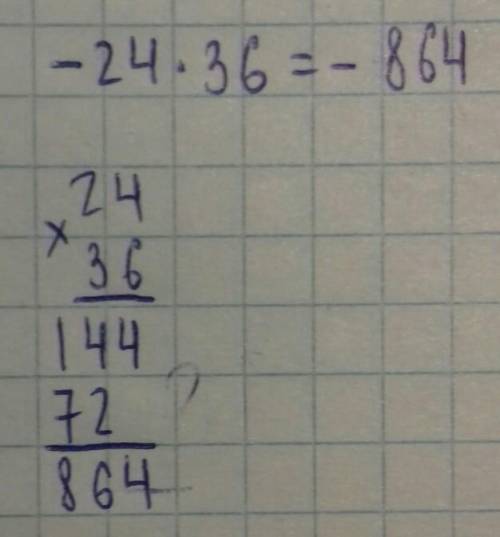 -24 · 36 = - 864
24
×
36
144
72
864